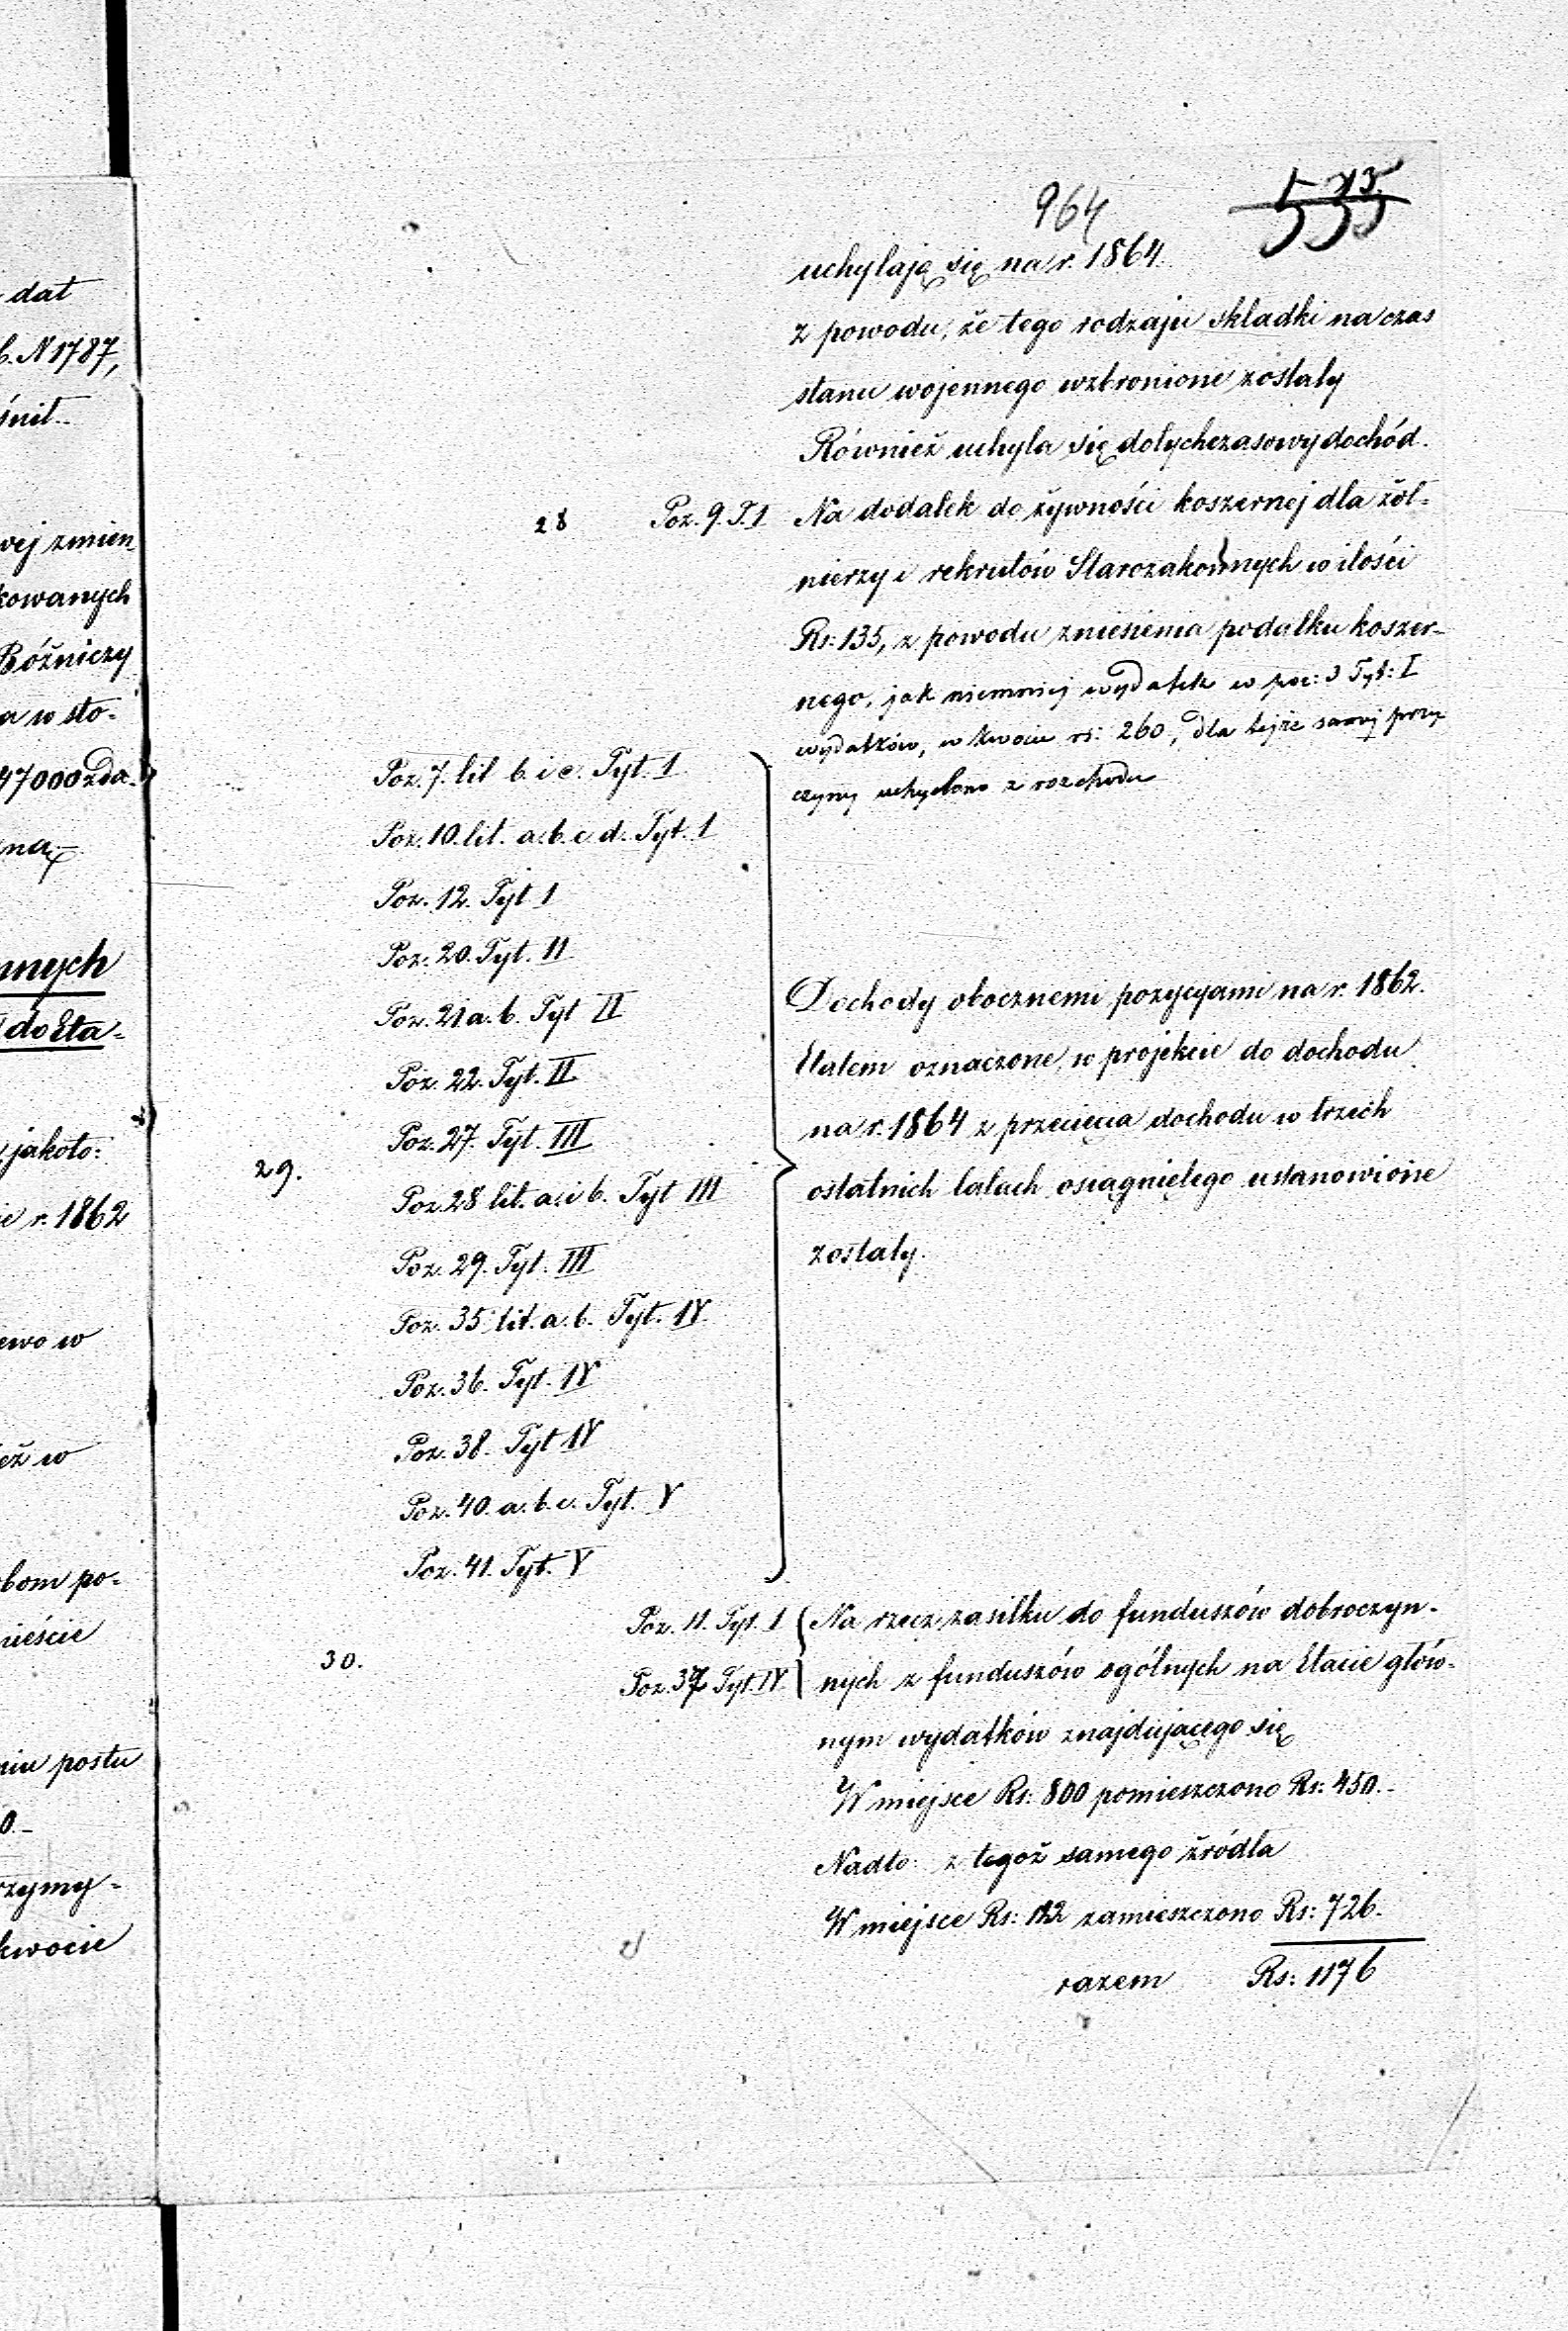 dat
b. N 1787,
śnił..
wej zmien
kowanych
Bóżniczy
a w sto-
47000 zda.
zną.
nnych
do Eta-
jakoto:
ie r. 1862
ewo w
eż w
obom po-
mieście
niu postu
0.-
rzymy-
kwocie
964
535
uchylają się na r. 1864.
z powodu, że tego rodzaju składki na czas
stanu wojennego wzbronione zostały
Również uchyla się dotychczasowy dochód.
28 Poz. 9. T. I Na dodatek do żywności koszernej dla żoł-
nierzy i rekrutów Starozakonnych w ilości
Rs: 135, z powodu zniesienia podatku koszer-
nego, jak niemniej wydatek w poz: 3 Tyt: I
wydatków, w kwocie rs: 260, dla tejże samej przy
czyny uchylono z rozchodu
Poz. 7. lit b. i c. Tyt. I
Poz. 10. lit. a. b. c d. Tyt. I
Poz. 12. Tyt I
Poz. 20. Tyt. II
Poz. 21 a. b. Tyt II
Poz. 22. Tyt. II
Poz. 27. Tyt. III
29.
Poz. 28 lit. a. i b. Tyt III
Poz. 29. Tyt. III
Poz. 35 lit. a. b. Tyt. IV
Poz. 36. Tyt. IV
Poz. 38. Tyt IV
Poz. 40. a. b. c. Tyt. V
Poz. 41. Tyt. V
Dochody obocznemi pozycyami na r. 1862.
Etatem oznaczone, w projekcie do dochodu
na r. 1864 z przecięcia dochodu w trzech
ostatnich latach osiągniętego ustanowione
zostały.
30.
Poz. 11. Tyt. I Na rzecz zasiłku do funduszów dobroczyn-
Poz. 37 Tyt. IV nych z funduszów ogólnych na Etacie głów-
nym wydatków znajdującego się
W miejsce Rs: 800 pomieszczono Rs: 450.-
Nadto: z tegoż samego źródła
W miejsce Rs: zamieszczono Rs: 726.
razem Rs: 1176